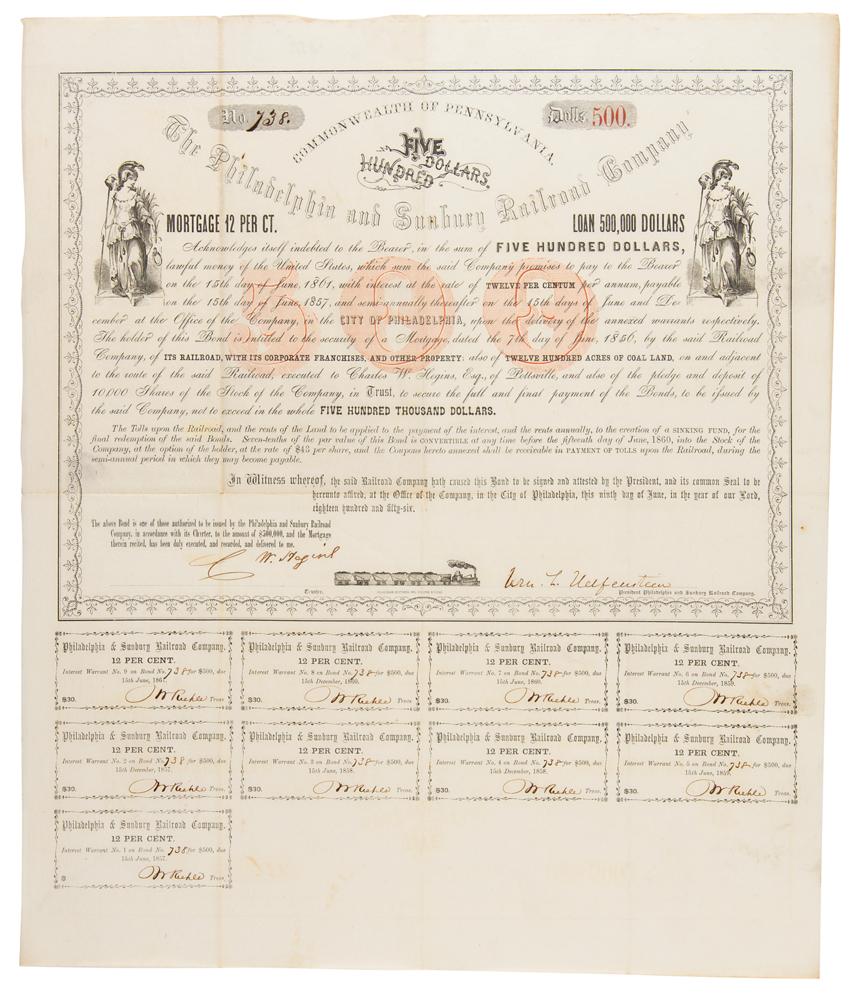 No. 738.
COMMONWEALTH OF PENNSYLVANIA.
Dolls. 500.
FIVE HUNDRED DOLLARS.
The Philadelphia and Sunbury Railroad Company
MORTGAGE 12 PER CT.
LOAN 500,000 DOLLARS
Acknowledges itself indebted to the Bearer, in the sum of FIVE HUNDRED DOLLARS,
lawful money of the United States, which sum the said Company promises to pay to the Bearer
on the 15th day of June, 1861, with interest at the rate of TWELVE PER CENTUM per annum, payable
on the 15th day of June, 1857, and semi-annually thereafter on the 15th days of June and De-
cember at the Office of the Company, in the CITY OF PHILADELPHIA, upon the delivery of the annexed warrants respectively.
The holder of this Bond is entitled to the security of a Mortgage, dated the 7th day of June, 1856, by the said Railroad
Company, of ITS RAILROAD, WITH ITS CORPORATE FRANCHISES, AND OTHER PROPERTY: also of TWELVE HUNDRED ACRES OF COAL LAND, on and adjacent
to the route of the said Railroad, executed to Charles W. Hegins, Esq., of Pottsville, and also of the pledge and deposit of
10,000 Shares of the Stock of the Company, in Trust, to secure the full and final payment of the Bonds, to be issued by
the said Company, not to exceed in the whole FIVE HUNDRED THOUSAND DOLLARS.
500
The Tolls upon the Railroad, and the rents of the Land to be applied to the payment of the interest, and the rents annually, to the creation of a SINKING FUND, for the
final redemption of the said Bonds. Seven-tenths of the par value of this Bond is CONVERTIBLE at any time before the fifteenth day of June, 1860, into the Stock of the
Company, at the option of the holder, at the rate of $43 per share, and the Coupons hereto annexed shall be receivable in PAYMENT OF TOLLS upon the Railroad, during the
semi-annual period in which they may become payable.
In Witness whereof, the said Railroad Company hath caused this Bond to be signed and attested by the President, and its common Seal to be
hereunto affixed, at the Office of the Company, in the City of Philadelphia, this ninth day of June, in the year of our Lord,
eighteen hundred and fifty-six.
The above Bond is one of those authorized to be issued by the Philadelphia and Sunbury Railroad
Company, in accordance with its Charter, to the amount of $500,000, and the Mortgage
therein recited, has been duly executed, and recorded, and delivered to me.
C W. Hegins
Trustee.
Wm. L. Helfenstein
President Philadelphia and Sunbury Railroad Company.
Philadelphia & Sunbury Railroad Company.
12 PER CENT.
Interest Warrant No. 9 on Bond No. 738 for $500, due
15th June, 1861.
$30. Treas.
Philadelphia & Sunbury Railroad Company.
12 PER CENT.
Interest Warrant No. 8 on Bond No. 738 for $500, due
15th December, 1860.
$30. Treas.
Philadelphia & Sunbury Railroad Company.
12 PER CENT.
Interest Warrant No. 7 on Bond No. 738 for $500, due
15th June, 1860.
$30. Treas.
Philadelphia & Sunbury Railroad Company.
12 PER CENT.
Interest Warrant No. 6 on Bond No. 738 for $500, due
15th December, 1859.
$30. Treas.
Philadelphia & Sunbury Railroad Company.
12 PER CENT.
Interest Warrant No. 2 on Bond No. 738 for $500, due
15th December, 1857.
$30. Treas.
Philadelphia & Sunbury Railroad Company.
12 PER CENT.
Interest Warrant No. 3 on Bond No. 738 for $500, due
15th June, 1858.
$30. Treas.
Philadelphia & Sunbury Railroad Company.
12 PER CENT.
Interest Warrant No. 4 on Bond No. 738 for $500, due
15th December, 1858.
$30. Treas.
Philadelphia & Sunbury Railroad Company.
12 PER CENT.
Interest Warrant No. 5 on Bond No. 738 for $500, due
15th June, 1859.
$30. Treas.
Philadelphia & Sunbury Railroad Company.
12 PER CENT.
Interest Warrant No. 1 on Bond No. 738 for $500, due
15th June, 1857.
$ Treas.